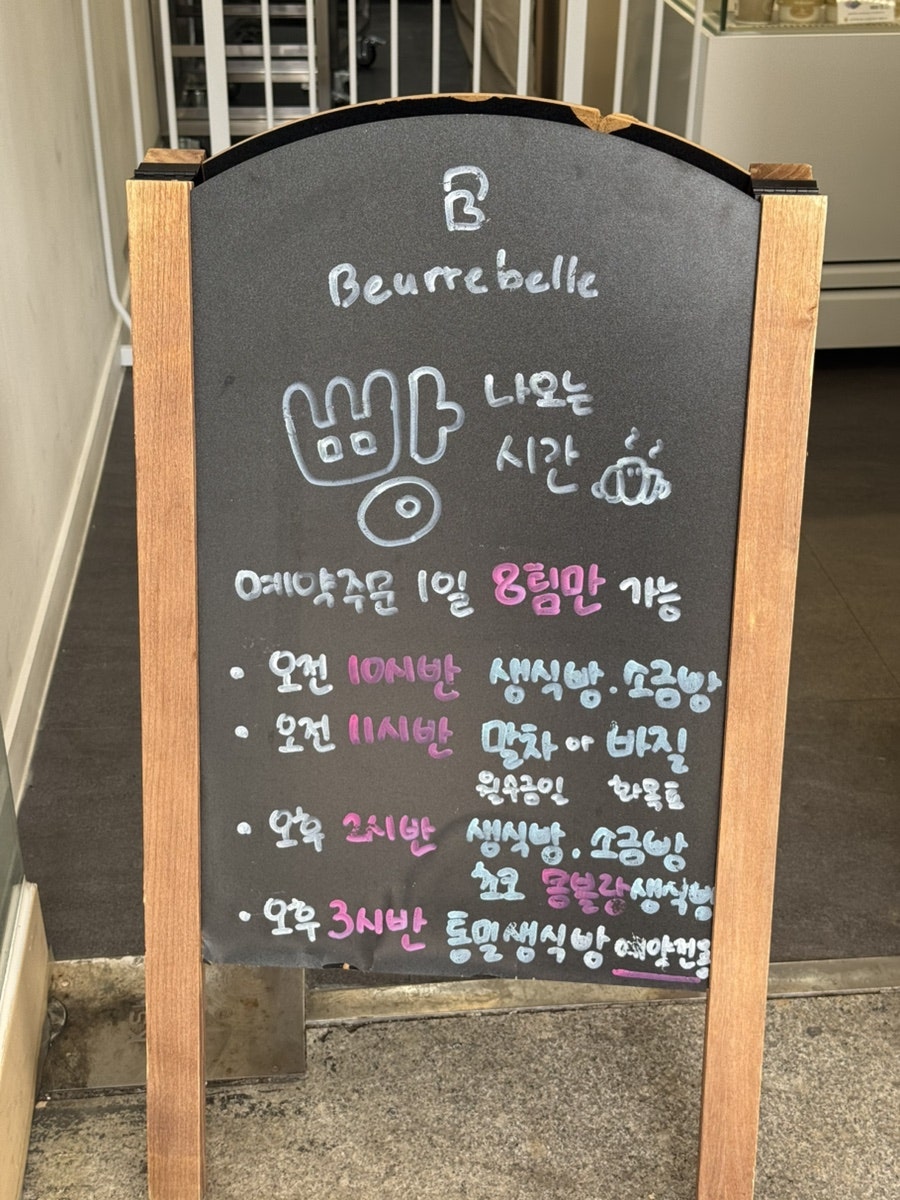 B
Beurrebelle
빵 나오는
시간
예약주문 1일 8팀만 가능
• 오전 10시반 생식빵.소금빵
• 오전 11시반 말차 or 바질
월수금일 화목토
• 오후 2시반 생식빵.소금빵
초코 몽블랑생식빵
• 오후 3시반 통밀생식빵 예약전용